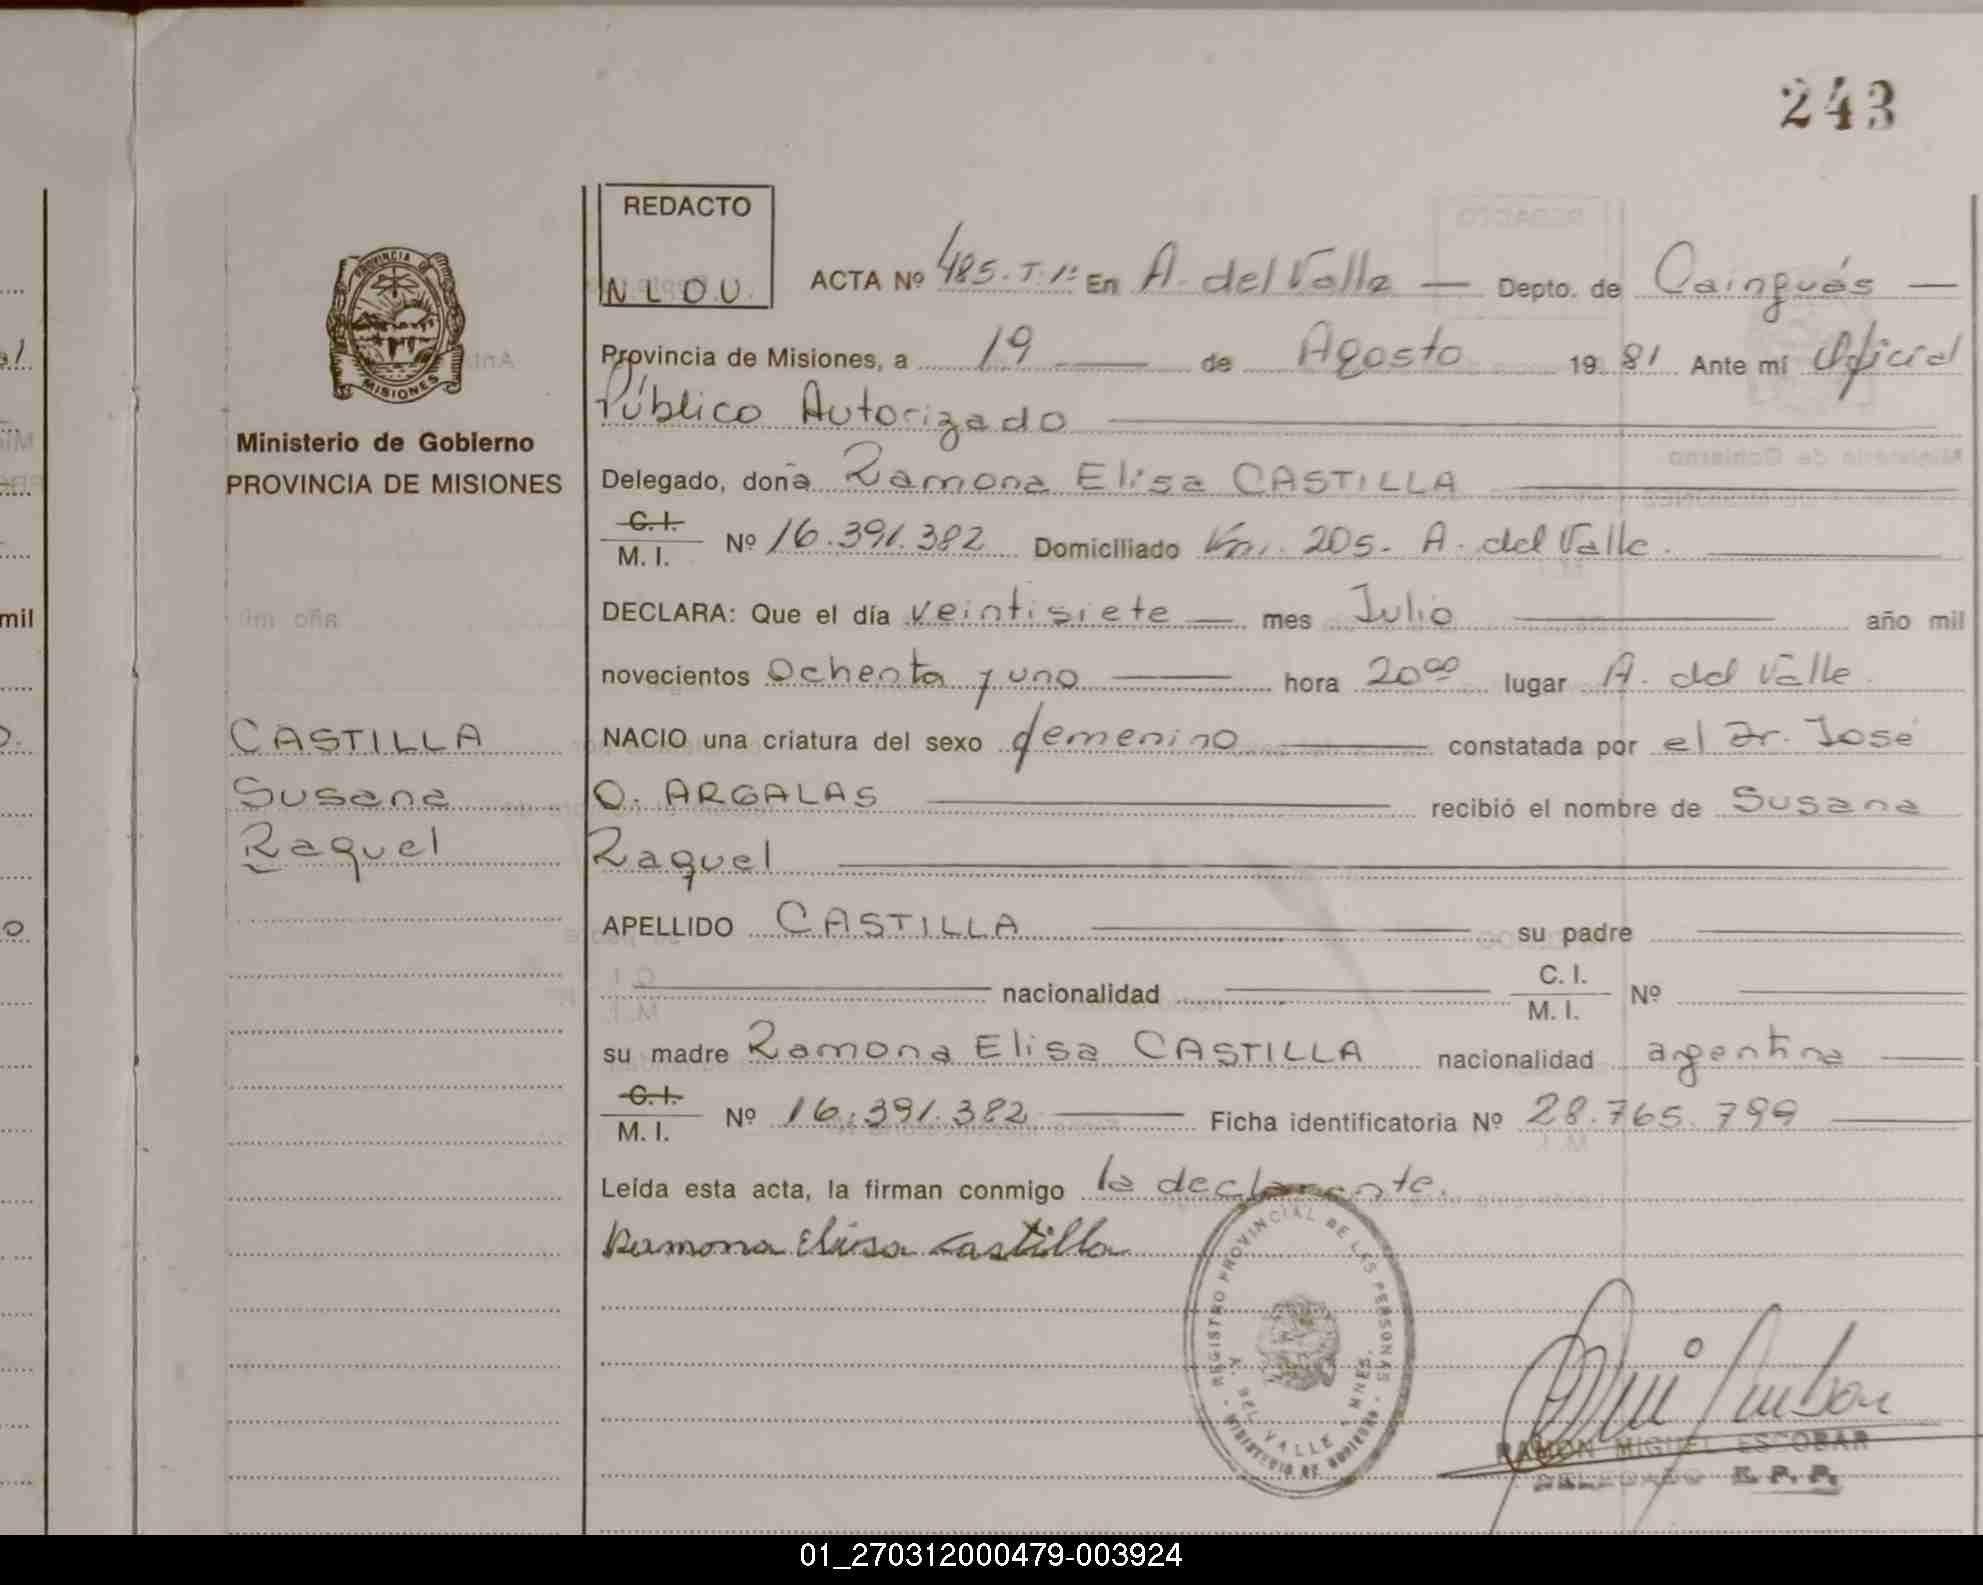 243
REDACTO
N L O U
ACTA Nº 485. T. 1º En A. del Valle — Depto. de Cainguás —
Provincia de Misiones, a 19 — de Agosto 19 81 Ante mí Oficial
Público Autorizado
PROVINCIA DE MISIONES
Ministerio de Gobierno
PROVINCIA DE MISIONES
Delegado, doña Ramona Elisa CASTILLA
C. I.
M. I. Nº 16.391.382 Domiciliado Km. 205. A. del Valle.
DECLARA: Que el día veintisiete — mes Julio — año mil
novecientos Ochenta y uno — hora 20⁰⁰ lugar A. del Valle.
CASTILLA
Susana
Raquel
NACIO una criatura del sexo femenino — constatada por el Dr. José
O. ARGALAS — recibió el nombre de Susana
Raquel
APELLIDO CASTILLA — su padre —
— nacionalidad — C. I.
M. I. Nº —
su madre Ramona Elisa CASTILLA nacionalidad argentina —
C. I.
M. I. Nº 16.391.382 — Ficha identificatoria Nº 28.765.799 —
Leída esta acta, la firman conmigo la declarante.
Ramona Elisa Castilla
REGISTRO PROVINCIAL DE LAS PERSONAS
A. DEL VALLE MNES.
MINISTERIO DE GOBIERNO
RAMON MIGUEL ESCOBAR
DELEGADO R. P. P.
01_270312000479-003924